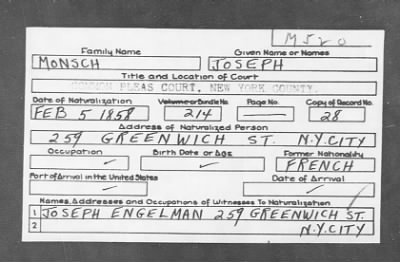 M520
Family Name Given Name or Names
MONSCH JOSEPH
Title and Location of Court
COMMON PLEAS COURT, NEW YORK COUNTY.
Date of Naturalization Volume or Bundle No. Page No. Copy of Record No.
FEB 5 1858 214 — 28
Address of Naturalized Person
259 GREENWICH ST. N.Y.CITY
Occupation Birth Date or Age Former Nationality
✓ ✓ FRENCH
Port of Arrival in the United States Date of Arrival
✓ ✓
Names, Addresses and Occupations of Witnesses To Naturalization
1 JOSEPH ENGELMAN 259 GREENWICH ST.
2 N.Y.CITY